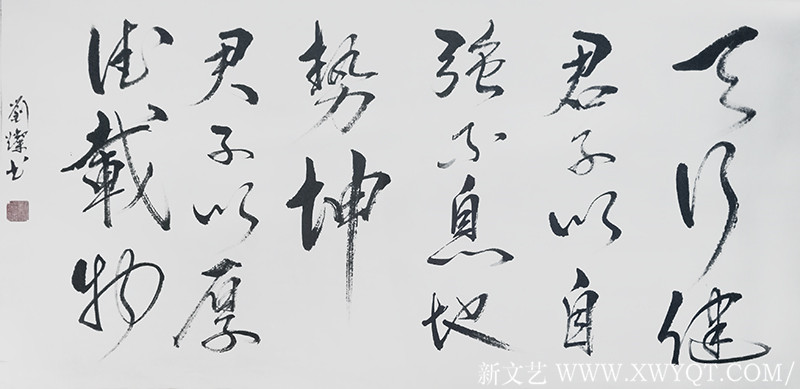 天行健
君子以自
強不息地
勢坤
君子以厚
德載物
劉燦書
新文艺 WWW.XWYQT.COM/